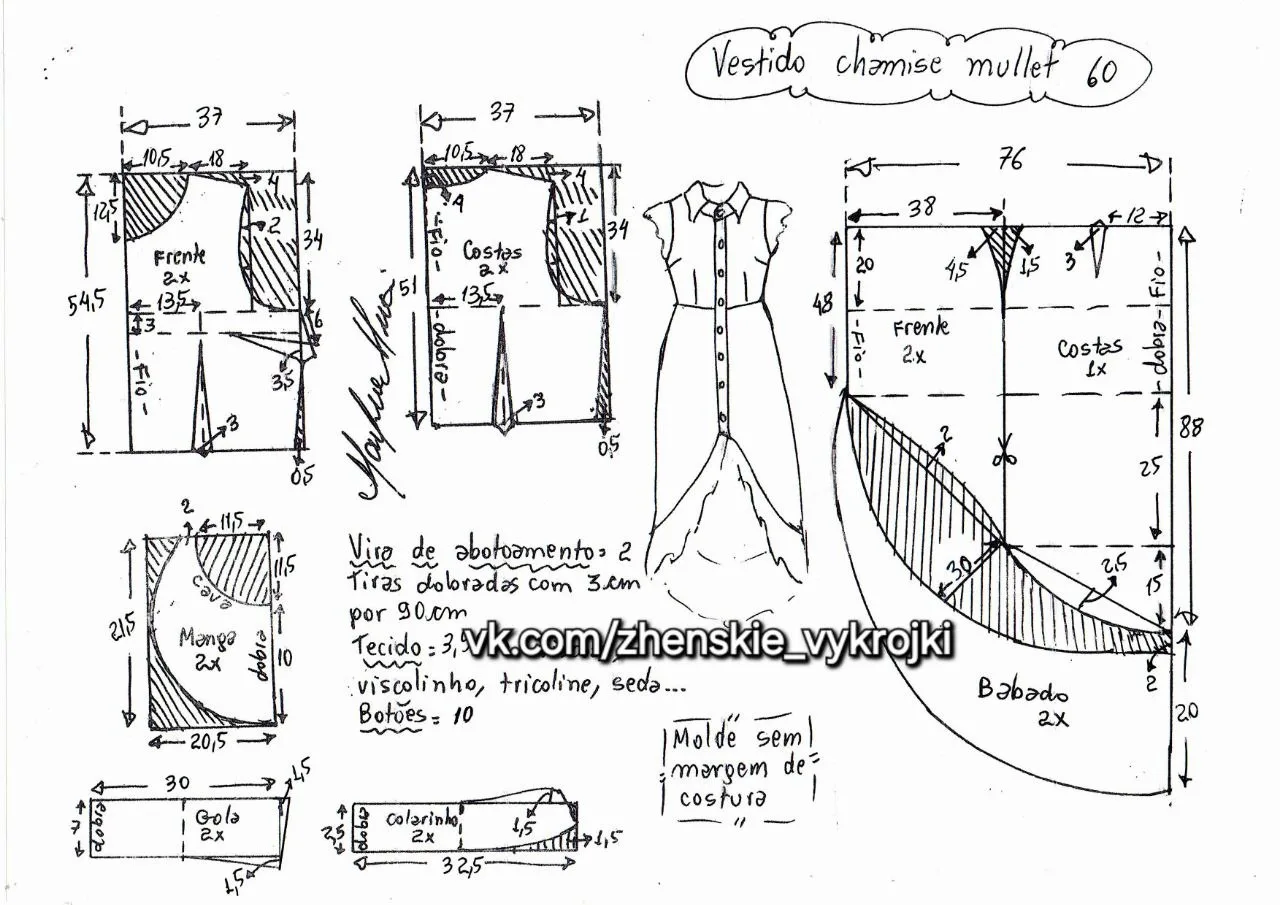 Vestido chamise mullet 60
37
10,5 18
4
12,5
2
34
Frente
2x
13,5
54,5
3
6
3,5
Fio
3
0,5
37
10,5 18
4
4
1
34
Fio
Costas
2x
13,5
51
dobra
3
0,5
76
38
12
4,5
1,5
3
20
48
Frente
2x
Fio
Costas
1x
dobra - Fio
88
2
25
30
2,5
15
2
20
Babado
2x
2
11,5
11,5
cava
21,5
Manga
2x
dobra
10
20,5
Vira de abotoamento = 2
Tiras dobradas com 3cm
por 90cm
Tecido = 3,5
vk.com/zhenskie_vykrojki
viscolinho, tricoline, seda...
Botões = 10
Molde sem
margem de
costura
30
1,5
7
dobra
Gola
2x
1,5
2,5
dobra
Colarinho
2x
1,5
1,5
32,5